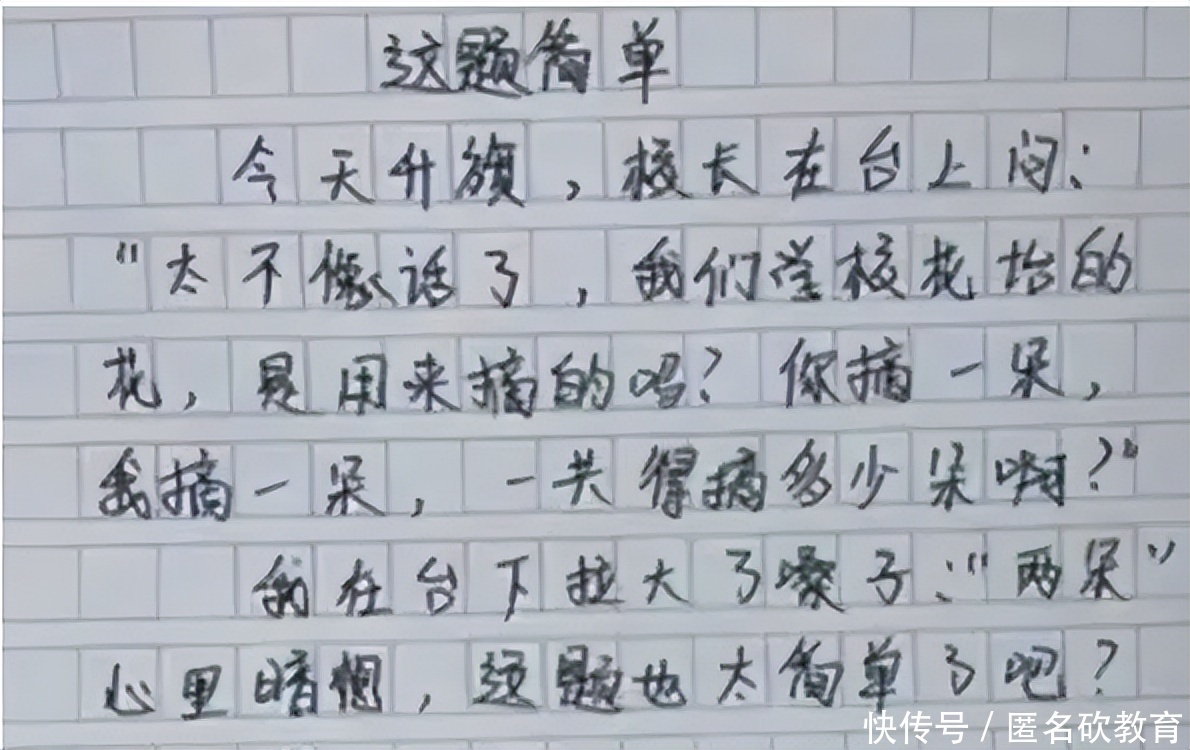 这题简单
今天升旗,校长在台上问:
"太不像话了,我们学校花坛的
花,是用来摘的吗?你摘一朵,
我摘一朵,一共得摘多少朵啊?"
我在台下拉大了嗓子:"两朵"
心里暗想,这题也太简单了吧?
快传号/匿名砍教育